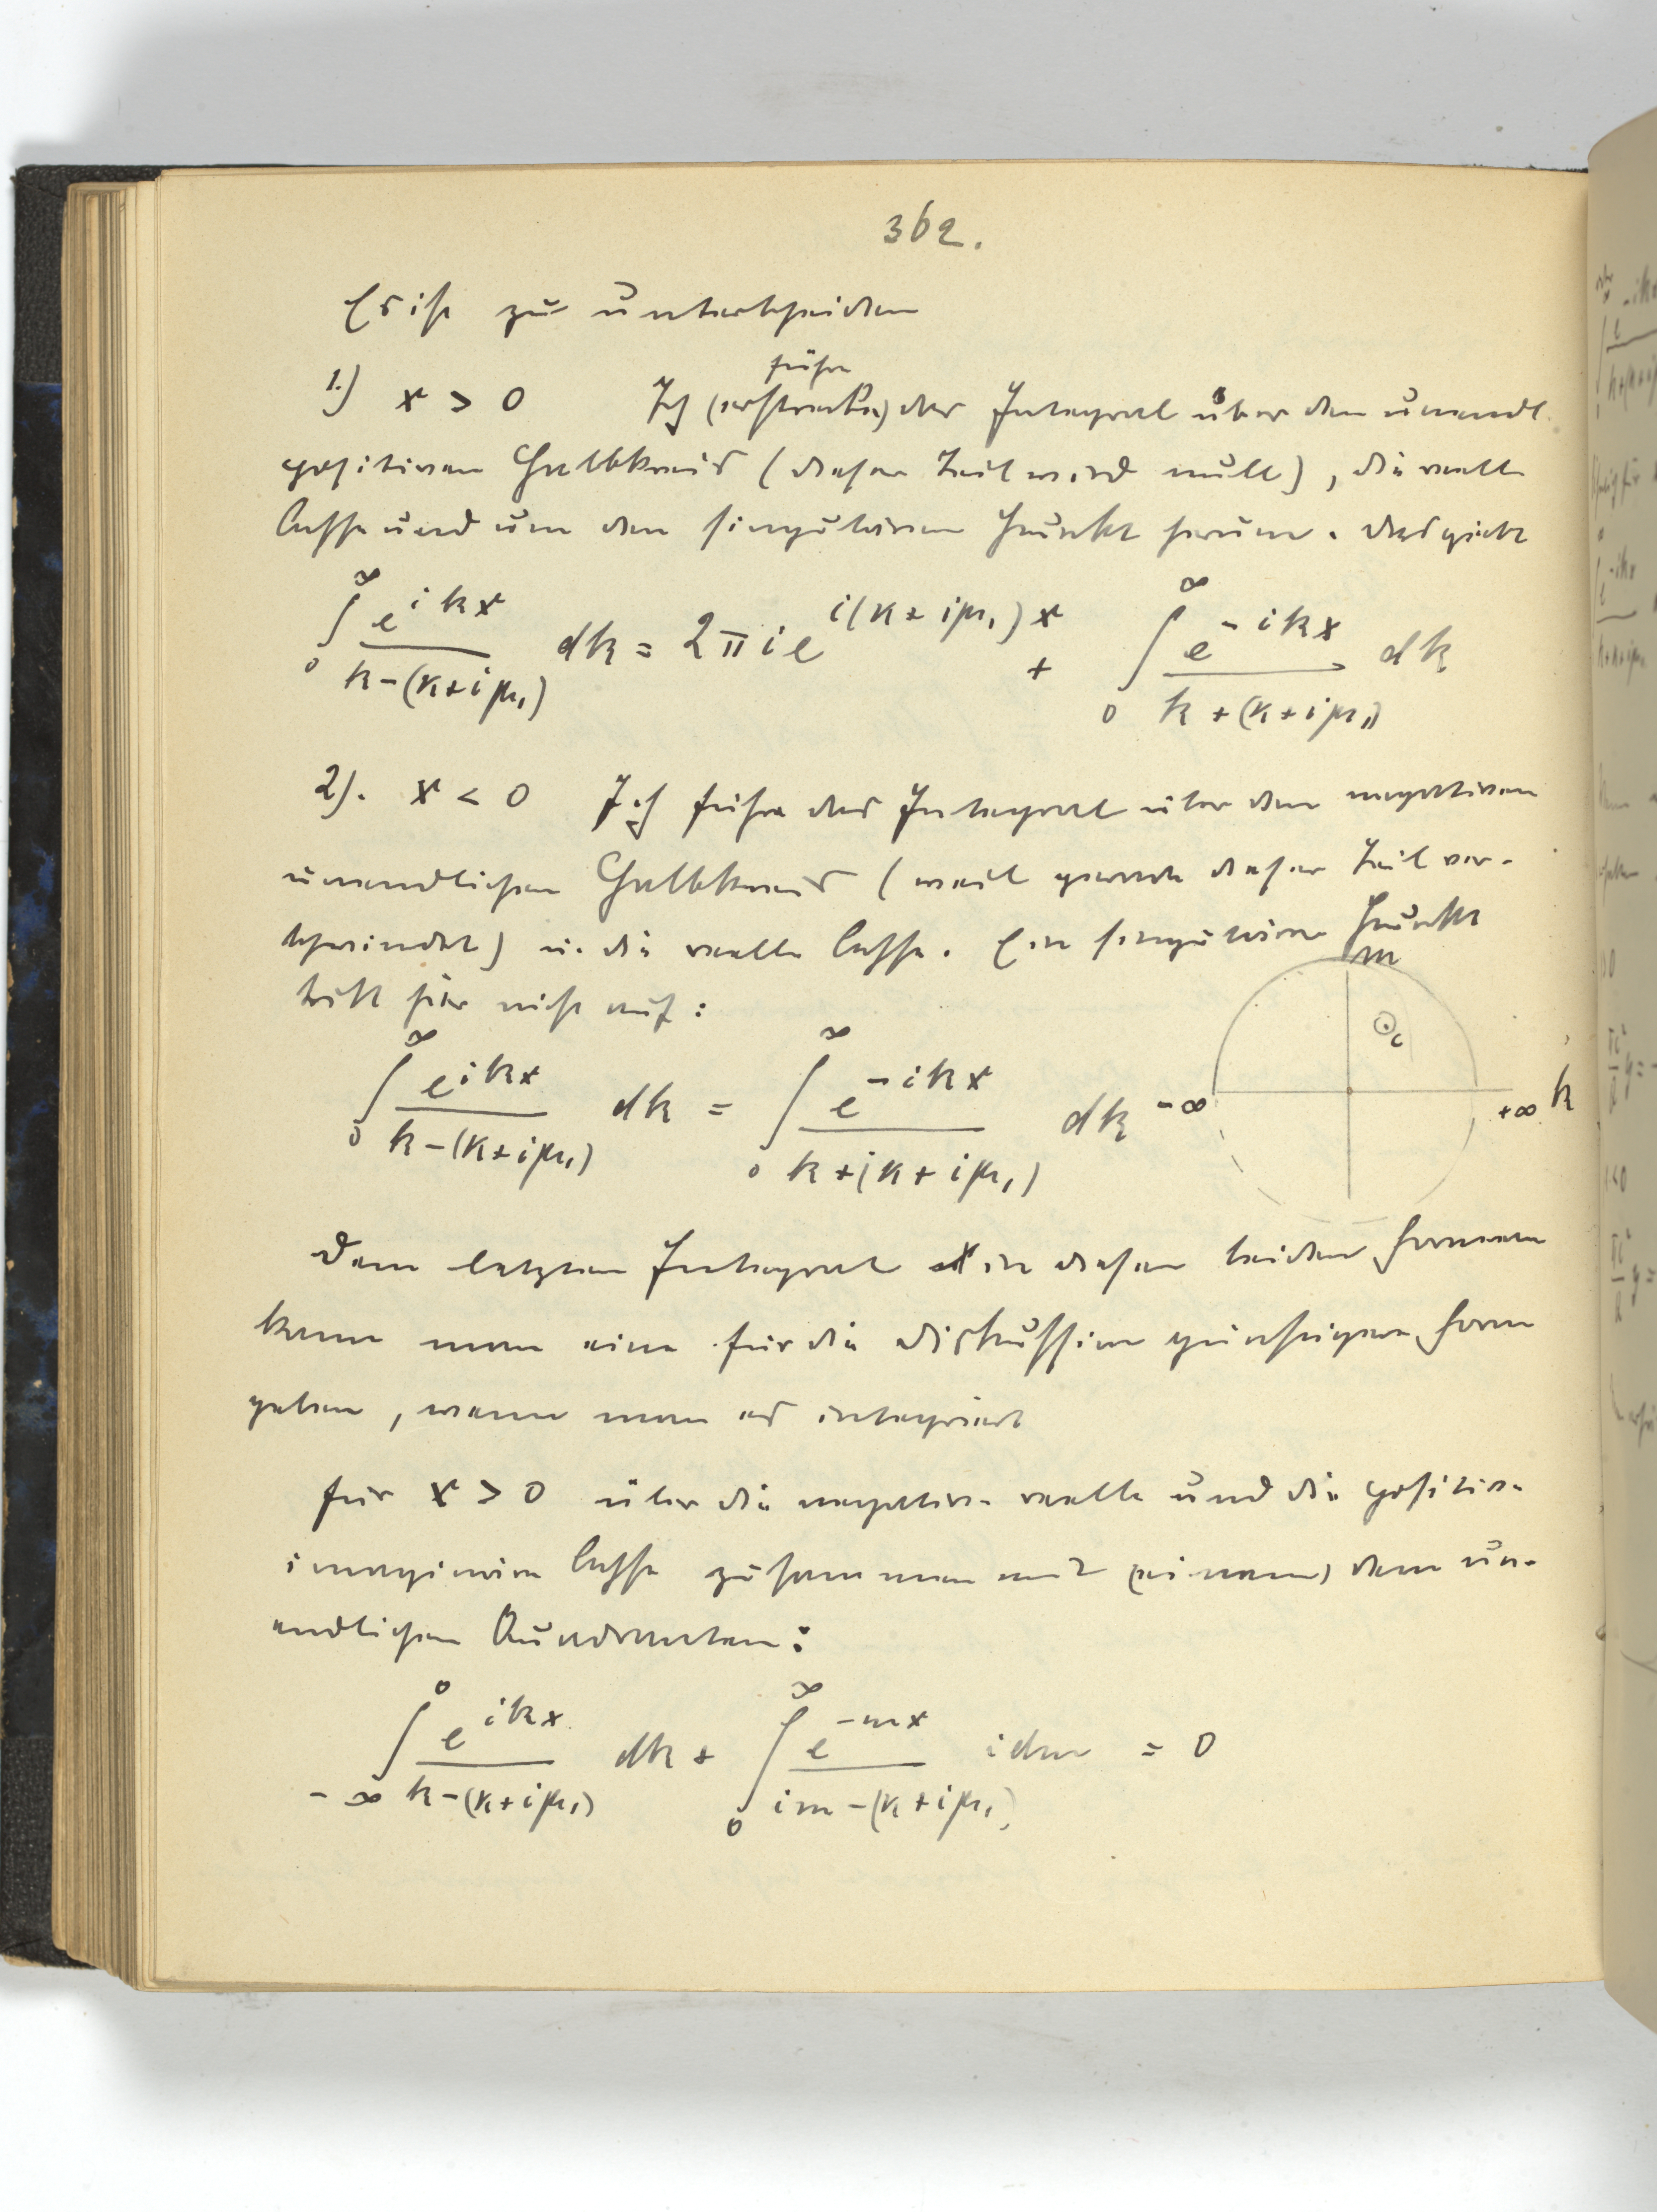 362.
Es ist zu unterscheiden
führe
1.) x > 0 Ich (erstrecke) das Integral über den unendl.
positiven Halbkreis (dieser Teil wird null), die reelle
Achse und um den singulären Punkt herum. Das giebt
∫₀^∞ e^{ikx} / (k-(κ+iμ₁)) dk = 2πi e^{i(κ+iμ₁)x} + ∫₀^∞ e^{-ikx} / (k+(κ+iμ₁)) dk
2). x < 0 Ich führe das Integral über den negativen
unendlichen Halbkreis (weil gerade dieser Teil ver-
schwindet) u. die reelle Achse. Ein singulärer Punkt
tritt hier nicht auf:
m
c
-∞ +∞ k
∫₀^∞ e^{ikx} / (k-(κ+iμ₁)) dk = ∫₀^∞ e^{-ikx} / (k+(κ+iμ₁)) dk
Dem letzten Integral in diesen beiden Formeln
kann man eine für die Diskussion günstigere Form
geben, wenn man es integriert
für x > 0 über die negative reelle und die positive
imaginäre Achse zusammen mit (einem) dem un-
endlichen Quadranten:
∫_{-∞}^0 e^{ikx} / (k-(κ+iμ₁)) dk + ∫₀^∞ e^{-mx} / (im-(κ+iμ₁)) idm = 0